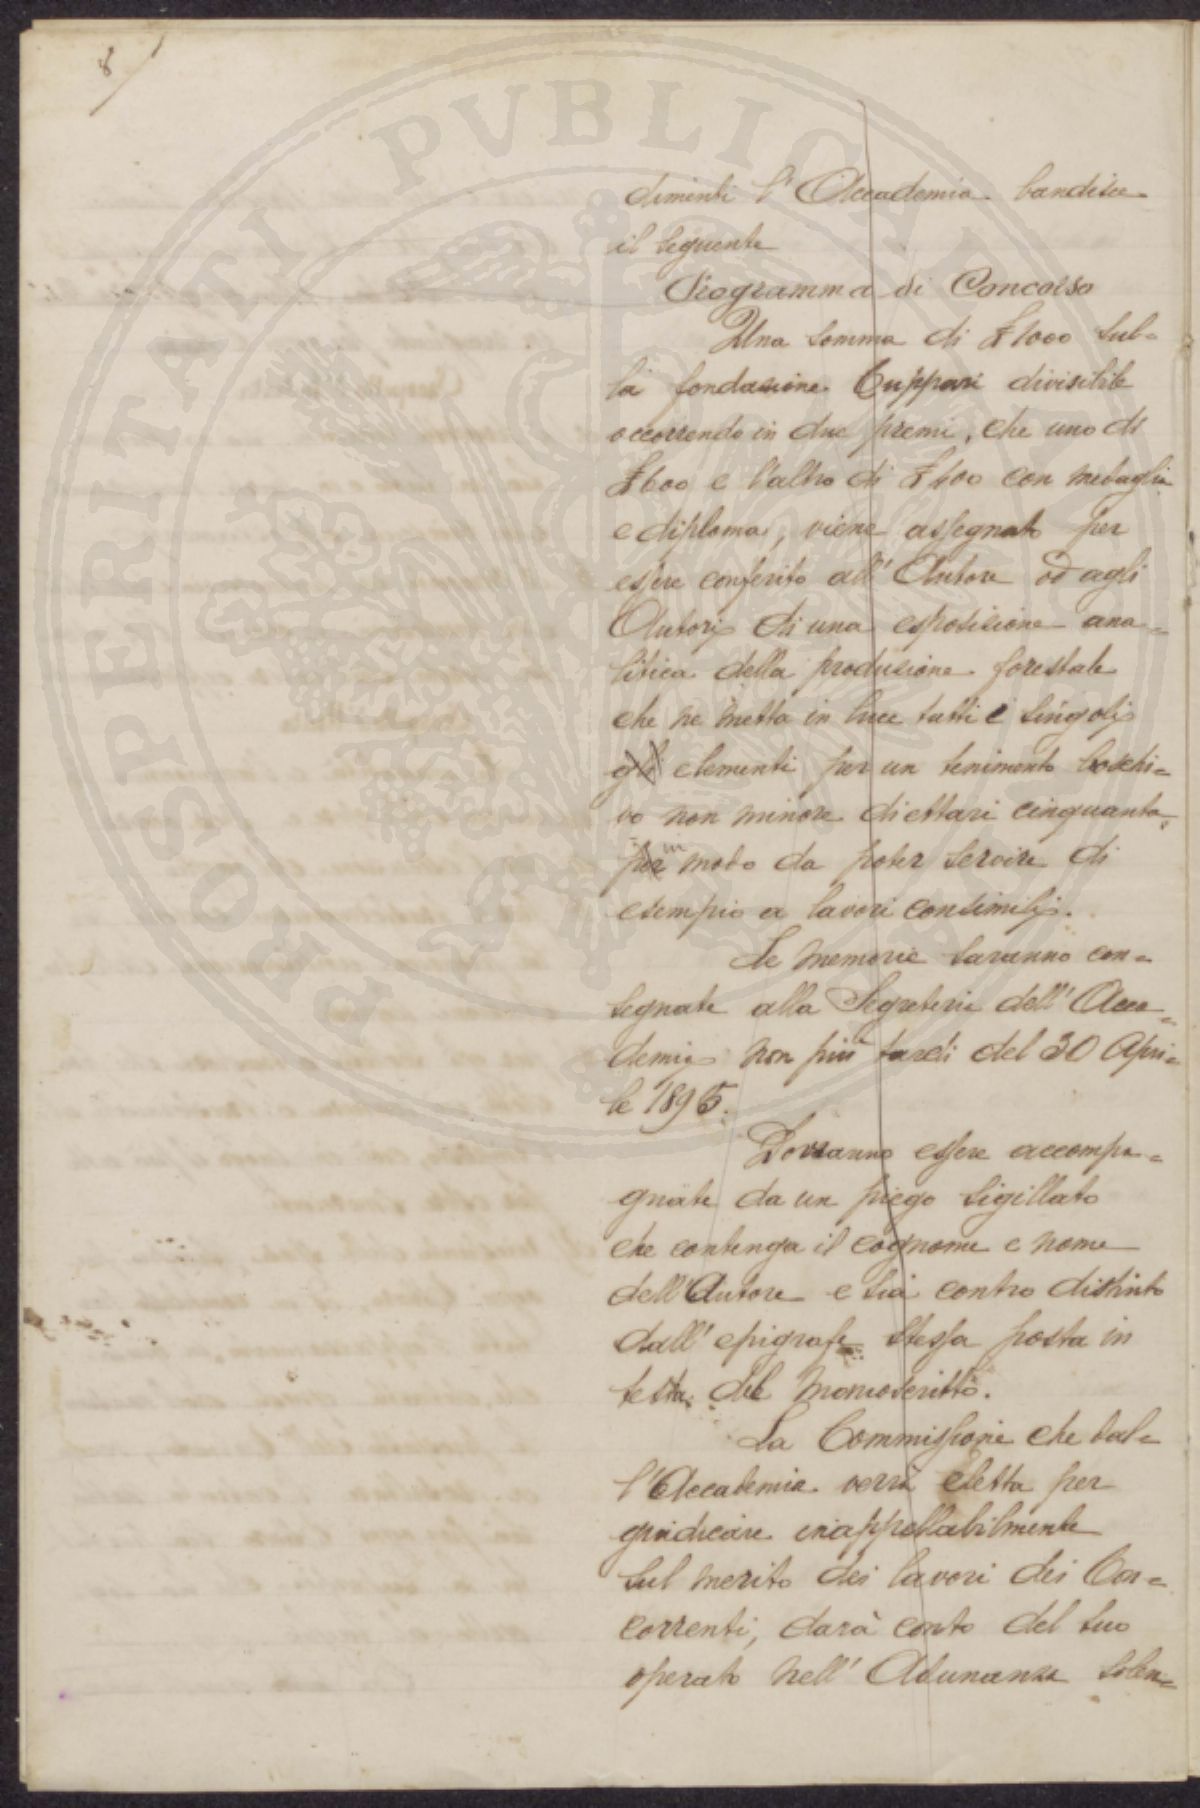 8
dimenti l'Accademia bandisce
il seguente
Programma di Concorso
Una somma di £ 1000 sul-
la fondazione Cuppari divisibile
occorrendo in due premi, che uno di
£ 600 e l'altro di £ 400 con medaglia
e diploma, viene assegnato per
essere conferito all'Autore od agli
Autori di una esposizione ana-
litica della produzione forestale
che ne metta in luce tutti i singoli
gli elementi per un tenimento boschi-
vo non minore di ettari cinquanta,
per in modo da poter servire di
esempio a lavori consimili.
Le memorie saranno con-
segnate alla Segreteria dell'Acca-
demia non più tardi del 30 Apri-
le 1895.
Dovranno essere accompa-
gnate da un piego sigillato
che contenga il cognome e nome
dell'Autore e sia contro distinto
dall'epigrafe stessa posta in
testa del manoscritto.
La Commissione che dal-
l'Accademia verrà eletta per
giudicare inappellabilmente
sul merito dei lavori dei Con-
correnti, darà conto del suo
operato nell'Adunanza solen-
PROSPERITATI PVBLICAE